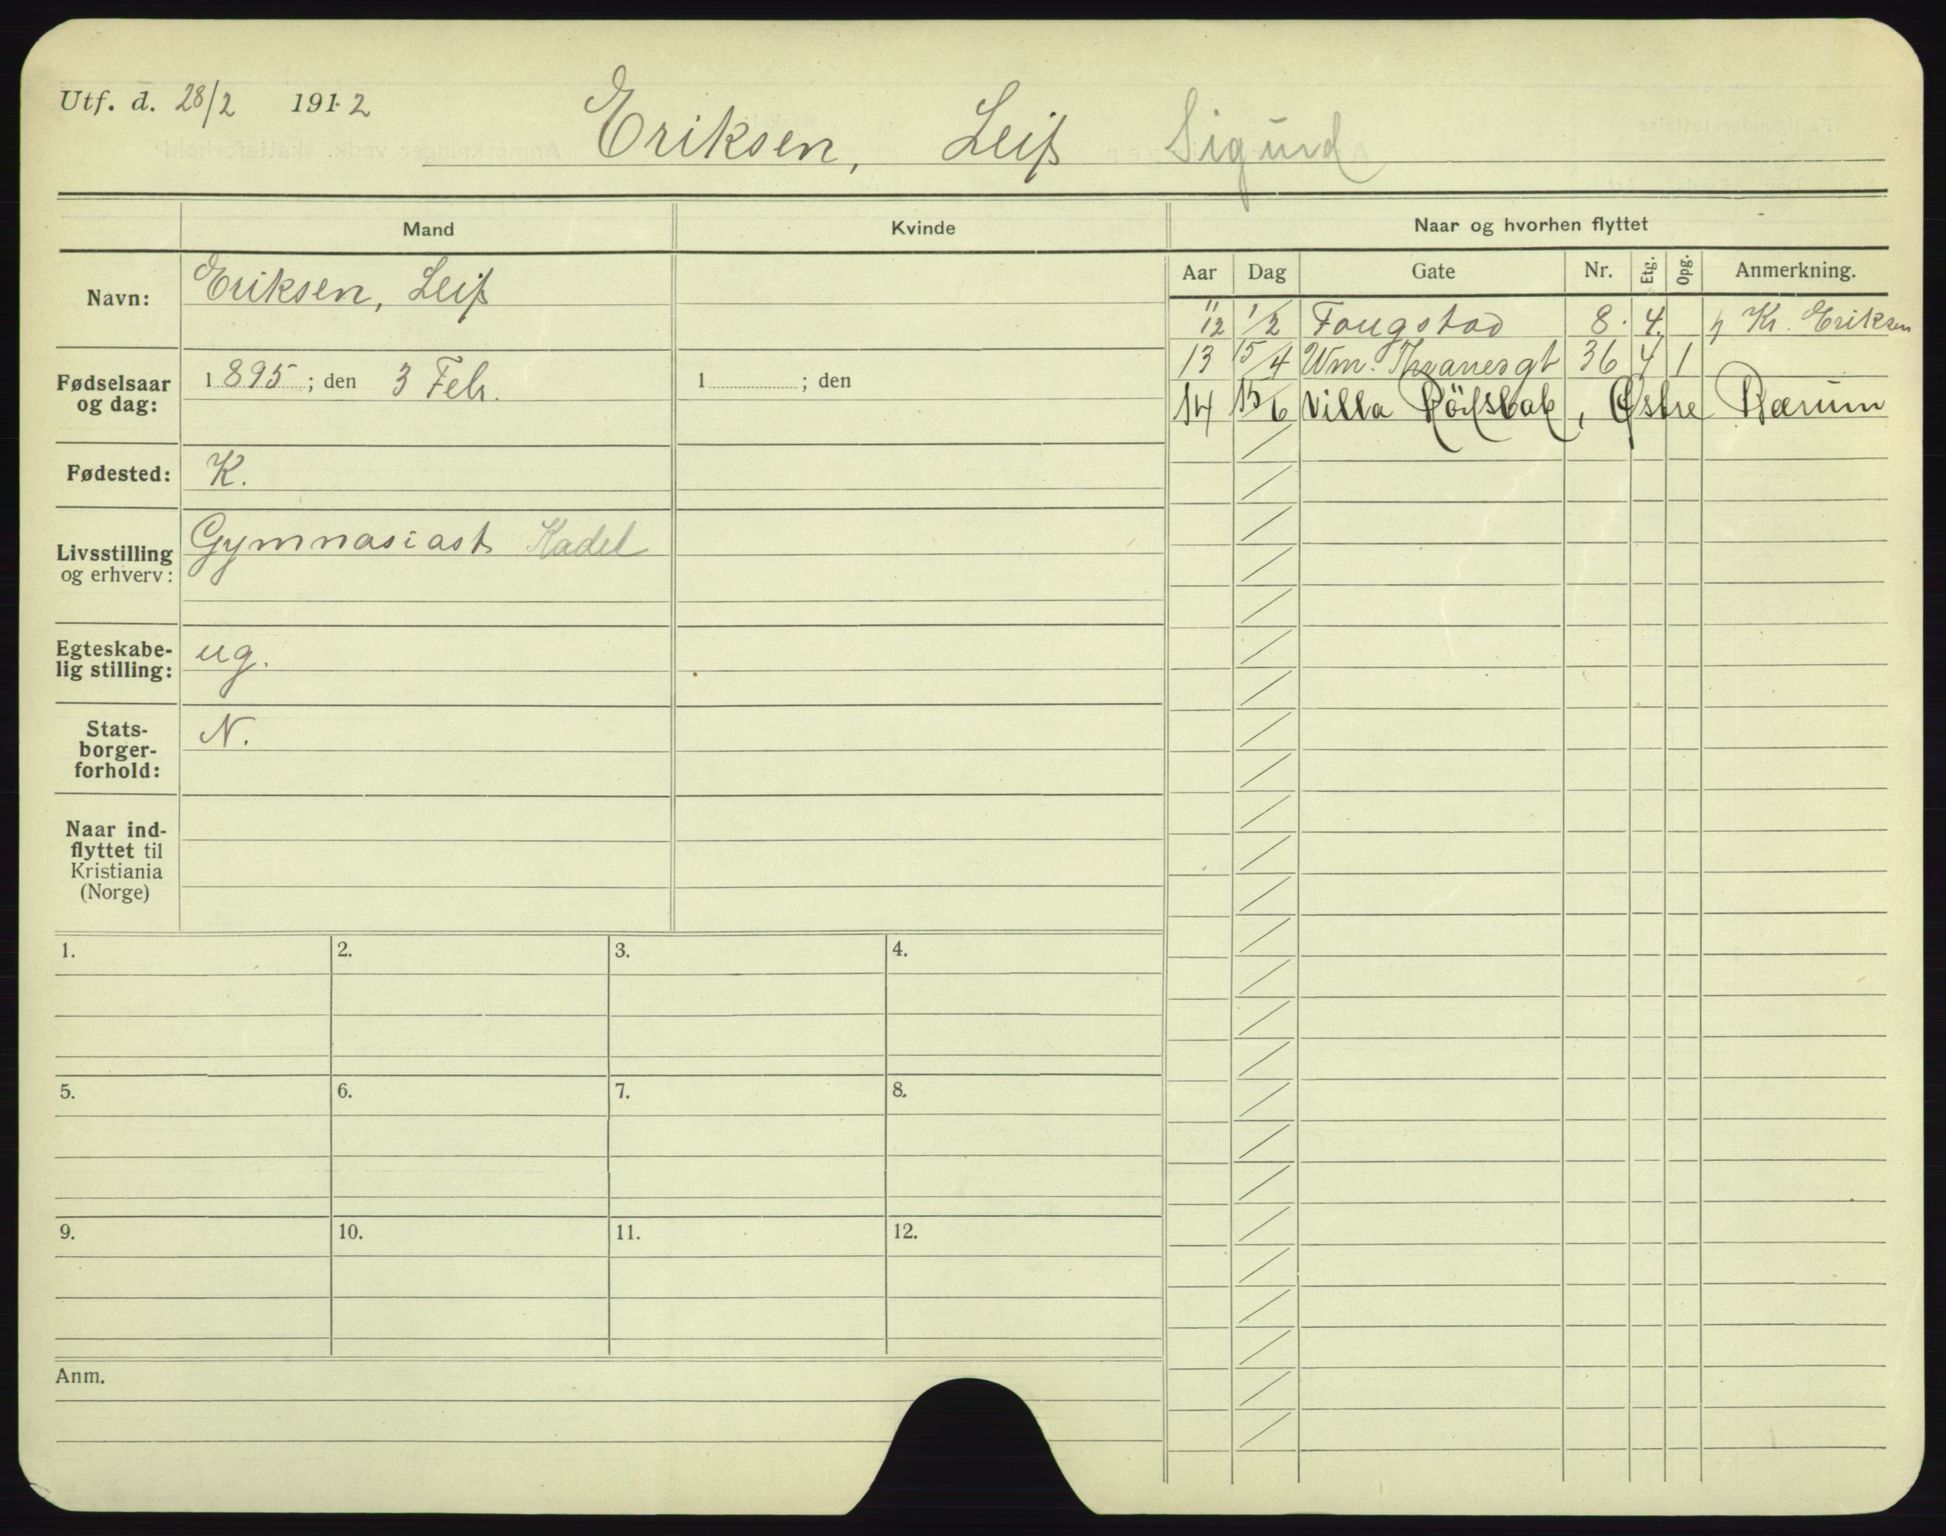 Utf. d. 28/2 1912
Eriksen, Leif Sigurd
Mand
Kvinde
Naar og hvorhen flyttet
Aar Dag Gate Nr. Etg. Opg. Anmerkning.
Navn: Eriksen, Leif
Fødselsaar og dag: 1895; den 3 Febr.
1 ; den
Fødested: K.
Livsstilling og erhverv: Gymnasiast Kadet
Egteskabe-
lig stilling: ug.
Stats-
borger-
forhold: N.
Naar ind-
flyttet til
Kristiania
(Norge)
" 12 1/2 Fougstad 8. 4. Kr. Eriksen
13 15/4 Wm. Thranesgt 36 4 1
14 15/6 Villa , Østre Bærum
1. 2. 3. 4.
5. 6. 7. 8.
9. 10. 11. 12.
Anm.